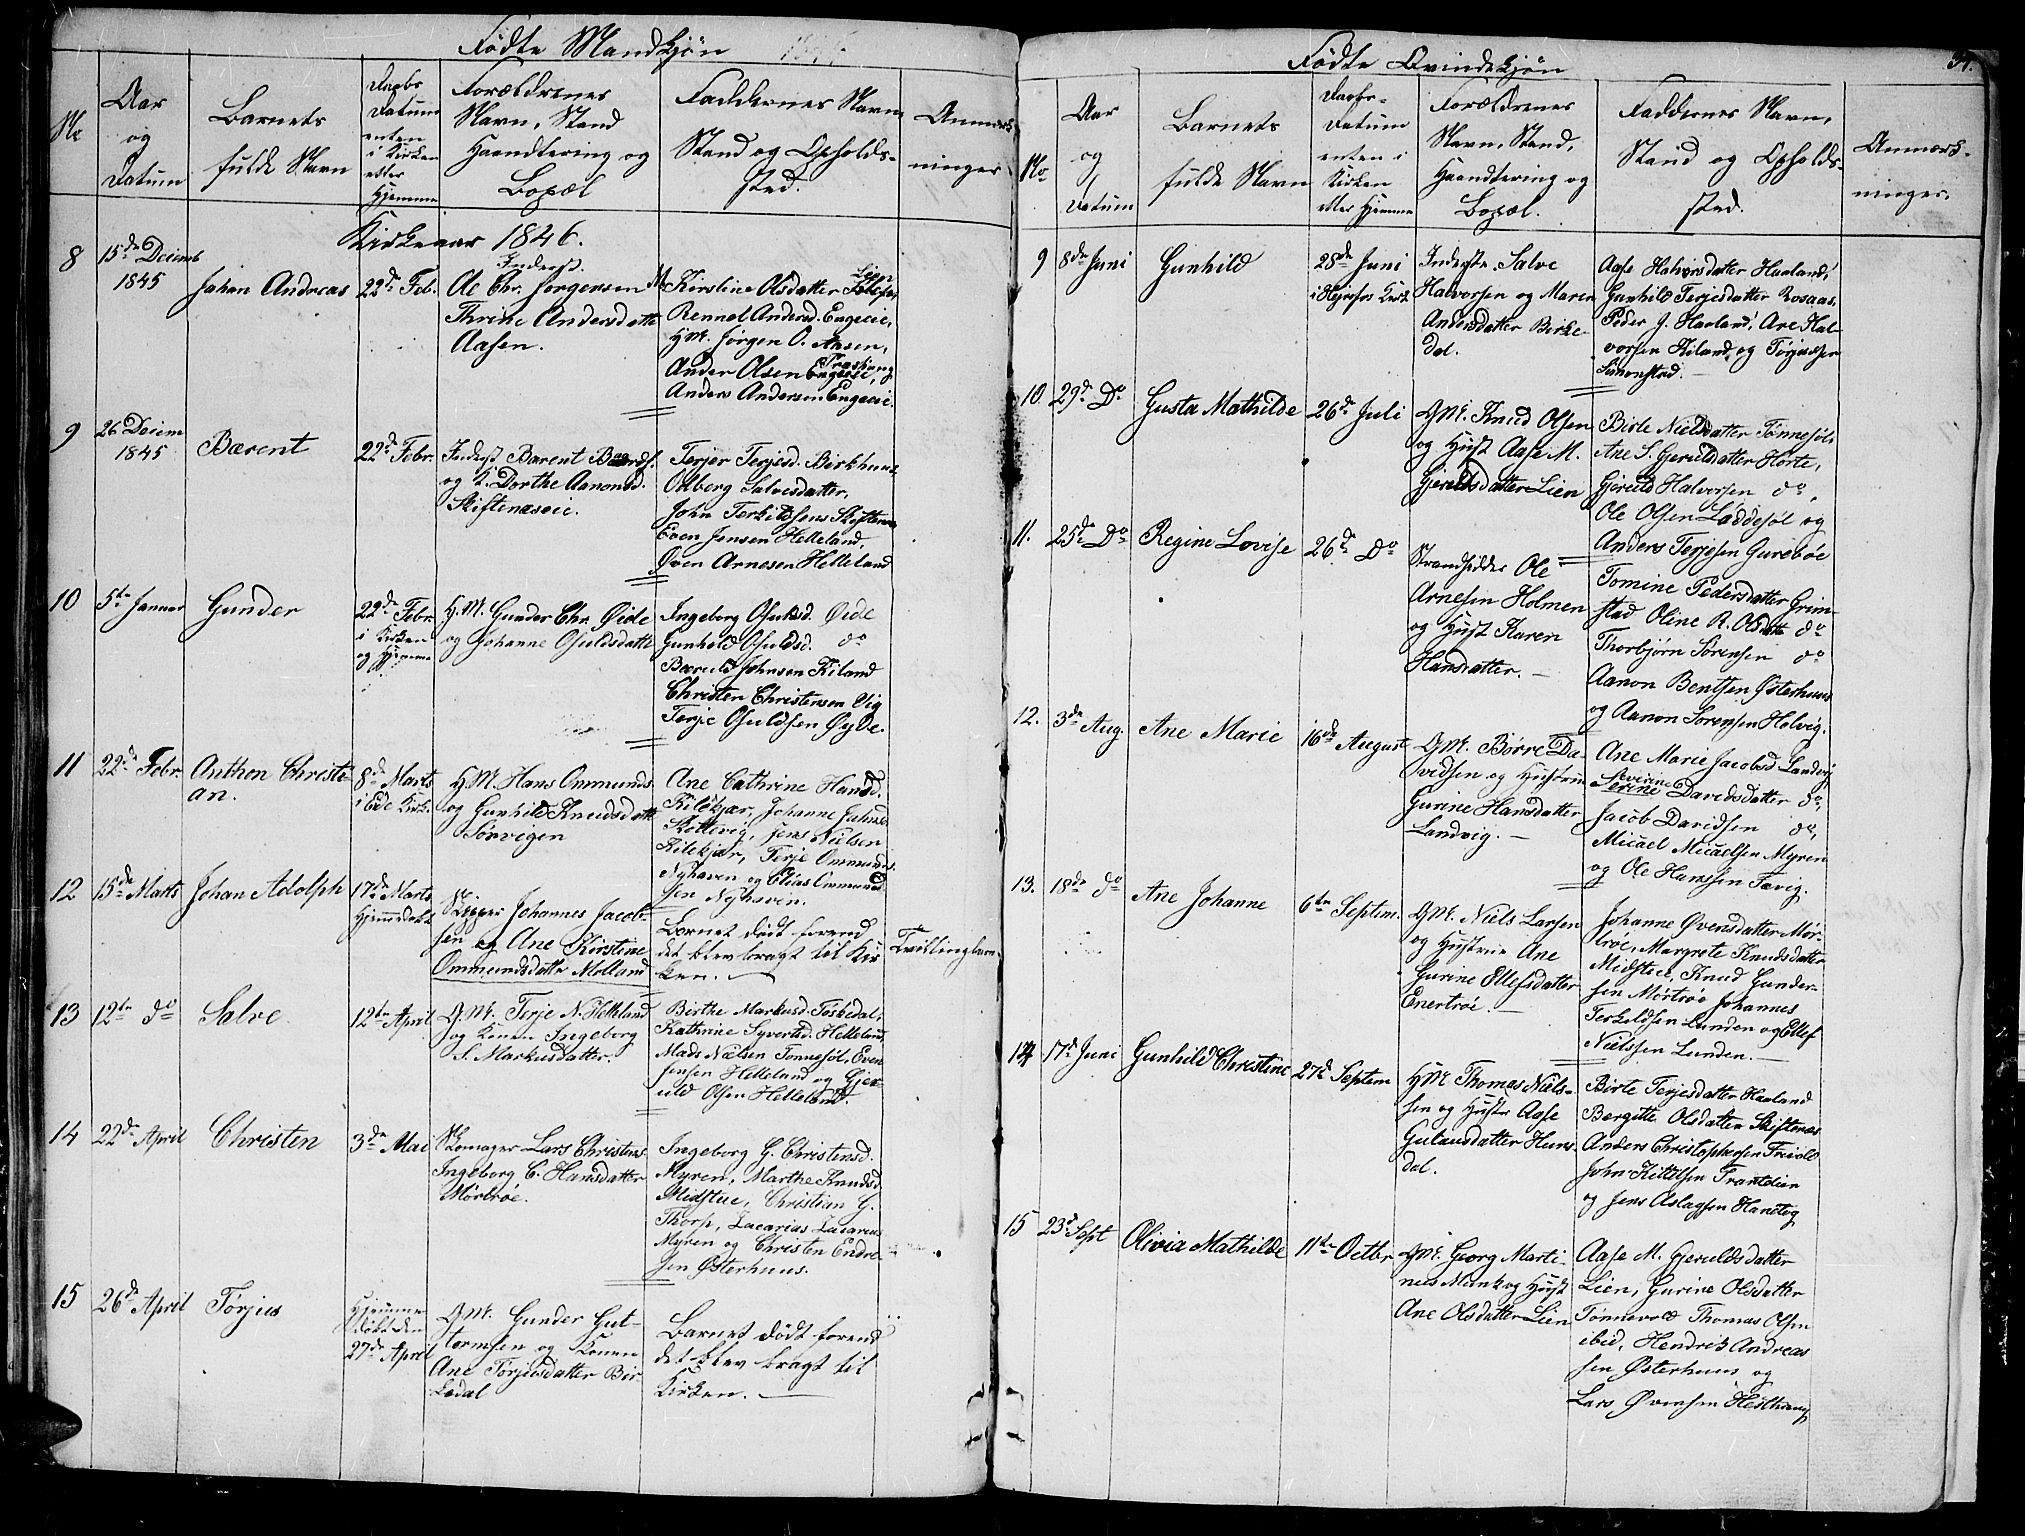 Fødte Mandkjøn
No
Aar
og
Datum
Barnets
fulde Navn
Daabs
Datum
enten
i Kirken
eller
Hjemme
Forældrenes
Navn, Stand
Haandtering og
Bopæl
Faddernes Navn
Stand og Opholds-
sted.
Anmærk-
ninger
Kirkeaar 1846.
8
15de Decemb
1845
Johan Andreas
22de Feb.
Inderst.
Ole Chr. Jørgensen
Thrine Andersdatte
Aasen.
Kirstine Olsdatter
Lien
Rennel Andersd. Engeeie,
GM. Jørgen O. Aasen,
Ander Olsen
Anders Andersen Engeeie.
9
26 Decem
1845
Bærent
22de Febr.
Inderst Bærent
og K. Dorthe Aanonsd.
Skiftenæseie.
Terjer Terjesd. Birkhuus
Odberg Salvesdatter,
John Terkildsens Skiftenæs
Even Jensen Helleland,
Øven Arnesen Helleland
10
5te Januar
Gunder
22de Febr.
i Kirken
og Hjemme
G.M. Gunder Chr. Øide
og Johanne Osuldsdatte
Ingeborg Osuldsd. Øide
Gunhild Osuldsd. do
Bæruld Johnsen Kiland
Christen Christensen Vig
Terje Osuldsen Øyde.
11
22de Febr.
Anthon Christi-
an.
8de Marts
i Eide Kirk.
G.M. Hans Ommunds.
og Gunhild Knudsdatte
Sørvigen
Ane Cathrine Hansd.
Kilekjær, Johanne Johns
Skottevig, Jens Nielsen
Kilekjær, Terje Ommunds.
Nyhaven og Elias Ommund
sen Nyhavn.
12
15de Marts
Johan Adolph
17de Marts
Hjemmedøbt
Skipper Johannes Jacob-
sen og Ane Kirstine
Ommundsdatte Molland
Barnet dødt forend
det blev bragt til Kir
ken.
Tvillingbarn
13
12te do
Salve
12te April
G.M. Terje N. Helleland
og Konen Ingeborg
S. Markusdatter.
Birthe Markusd. Føskedal,
Kathrine Syverted. Helleland,
Mads Nielsen Tønnesøl, Even
Jensen Helleland og Gjer
uld Olsen Helleland.
14
22de April
Christen
3de Mai
Skomager Lars Christens.
Ingeborg C. Hansdatter
Mørbrøe.
Ingeborg G. Christensd.
Myren, Marthe Knudsd.
Midstue, Christian G.
Thorp, Zacarias Zacarias
Myren og Christen Endre-
sen Østerhuus.
15
26de April
Tørjus
Hjemme
døbt den
27de April
G.M. Gunder Gut-
tormsen og Konen
Ane Tørjusdatter Bir
kedal
Barnet dødt forend
det blev bragt til
Kirken.
Fødte Qvindekjøn
34.
No
Aar
og
Datum
Barnets
fulde Navn
Daabs-
Datum
enten i
Kirken
eller Hjemme
Forældrenes
Navn, Stand,
Haandtering og
Bopæl.
Faddernes Navn,
Stand og Opholds-
sted.
Anmærk-
ninger.
9
8de Juni
Gunhild
28de Juni
i Hejrefos Kirk
Inderste Salve
Halvorsen og Maren
Andersdatter Birke-
dal.
Aase Halvorsdatter Haaland,
Gunhild Terjesdatter Rosaas,
Peder J. Haaland, Are Hal-
vorsen Kiland, og Tørjussen
Simonstad.
10.
29de Do
Gusta Mathilde
26de Juli
G.M. Knud Olsen
og Hust Aase M.
Gjeruldsdatter Lien
Birte Nielsdatter Tønnesøl,
Ane S. Gjeruldsdatter Hørte,
Gjeruld Halvorsen do,
Ole Olsen Laddesøl og
Anders Terjesen Gurebøe
11.
25de Do
Regine Lovise
26de Do
Strandsidder Ole
Arnesen Holmen
og Hust Karen
Hansdatter.
Tomine Pedersdatter Grim-
stad Oline R. Olsdatte do
Thorbjørn Sørensen do
Aanon Bentsen Østerhuus
og Aanon Sørensen Holvig.
12.
3de Aug.
Ane Marie
16de August
G.M. Børre Da-
vidsen og Hustrue
Gurine Hansdatter
Landvig.
Ane Marie Jacobsd Landvig
Severine
Serine Davidsdatter do,
Jacob Davidsen do,
Micael Micaelsen Myren
og Ole Hansen Tævig.
13.
18de do
Ane Johanne
6te Septem.
G.M. Niels Larsen
og Hustrue Ane
Gurine Ellefsdatter
Enertrøe.
Johanne Øvensdatter Mør-
trøe, Margrete Knudsdatter
Midstue, Knud Gunder-
sen Mørtrøe Johannes
Terkeldsen Lunden og Ellef
Nielsen Lunden.
14
17de Juni
Gunhild Christine
27de Septem
G.M Thomas Niels-
sen og Hustr Aase
Gulausdatter Huus-
dal.
Birte Terjesdatter Haaland
Bergitte Olsdatter Skiftenæs
Anders Christophersen Frivold
John Kittelsen Trantdein
og Jens Aslagsen Hanevig
15
23de Sept
Olivia Mathilde
11te Octbr
G.M. Georg Marti-
nius Munk og Hust
Ane Olsdatter Lien
Aase M. Gjeruldsdatter
Lien, Gurine Olsdatter
Tønnevold Thomas Olsen
ibid, Hendrik Andreas
sen Østerhuus og
Lars Øvensen Hesthaug